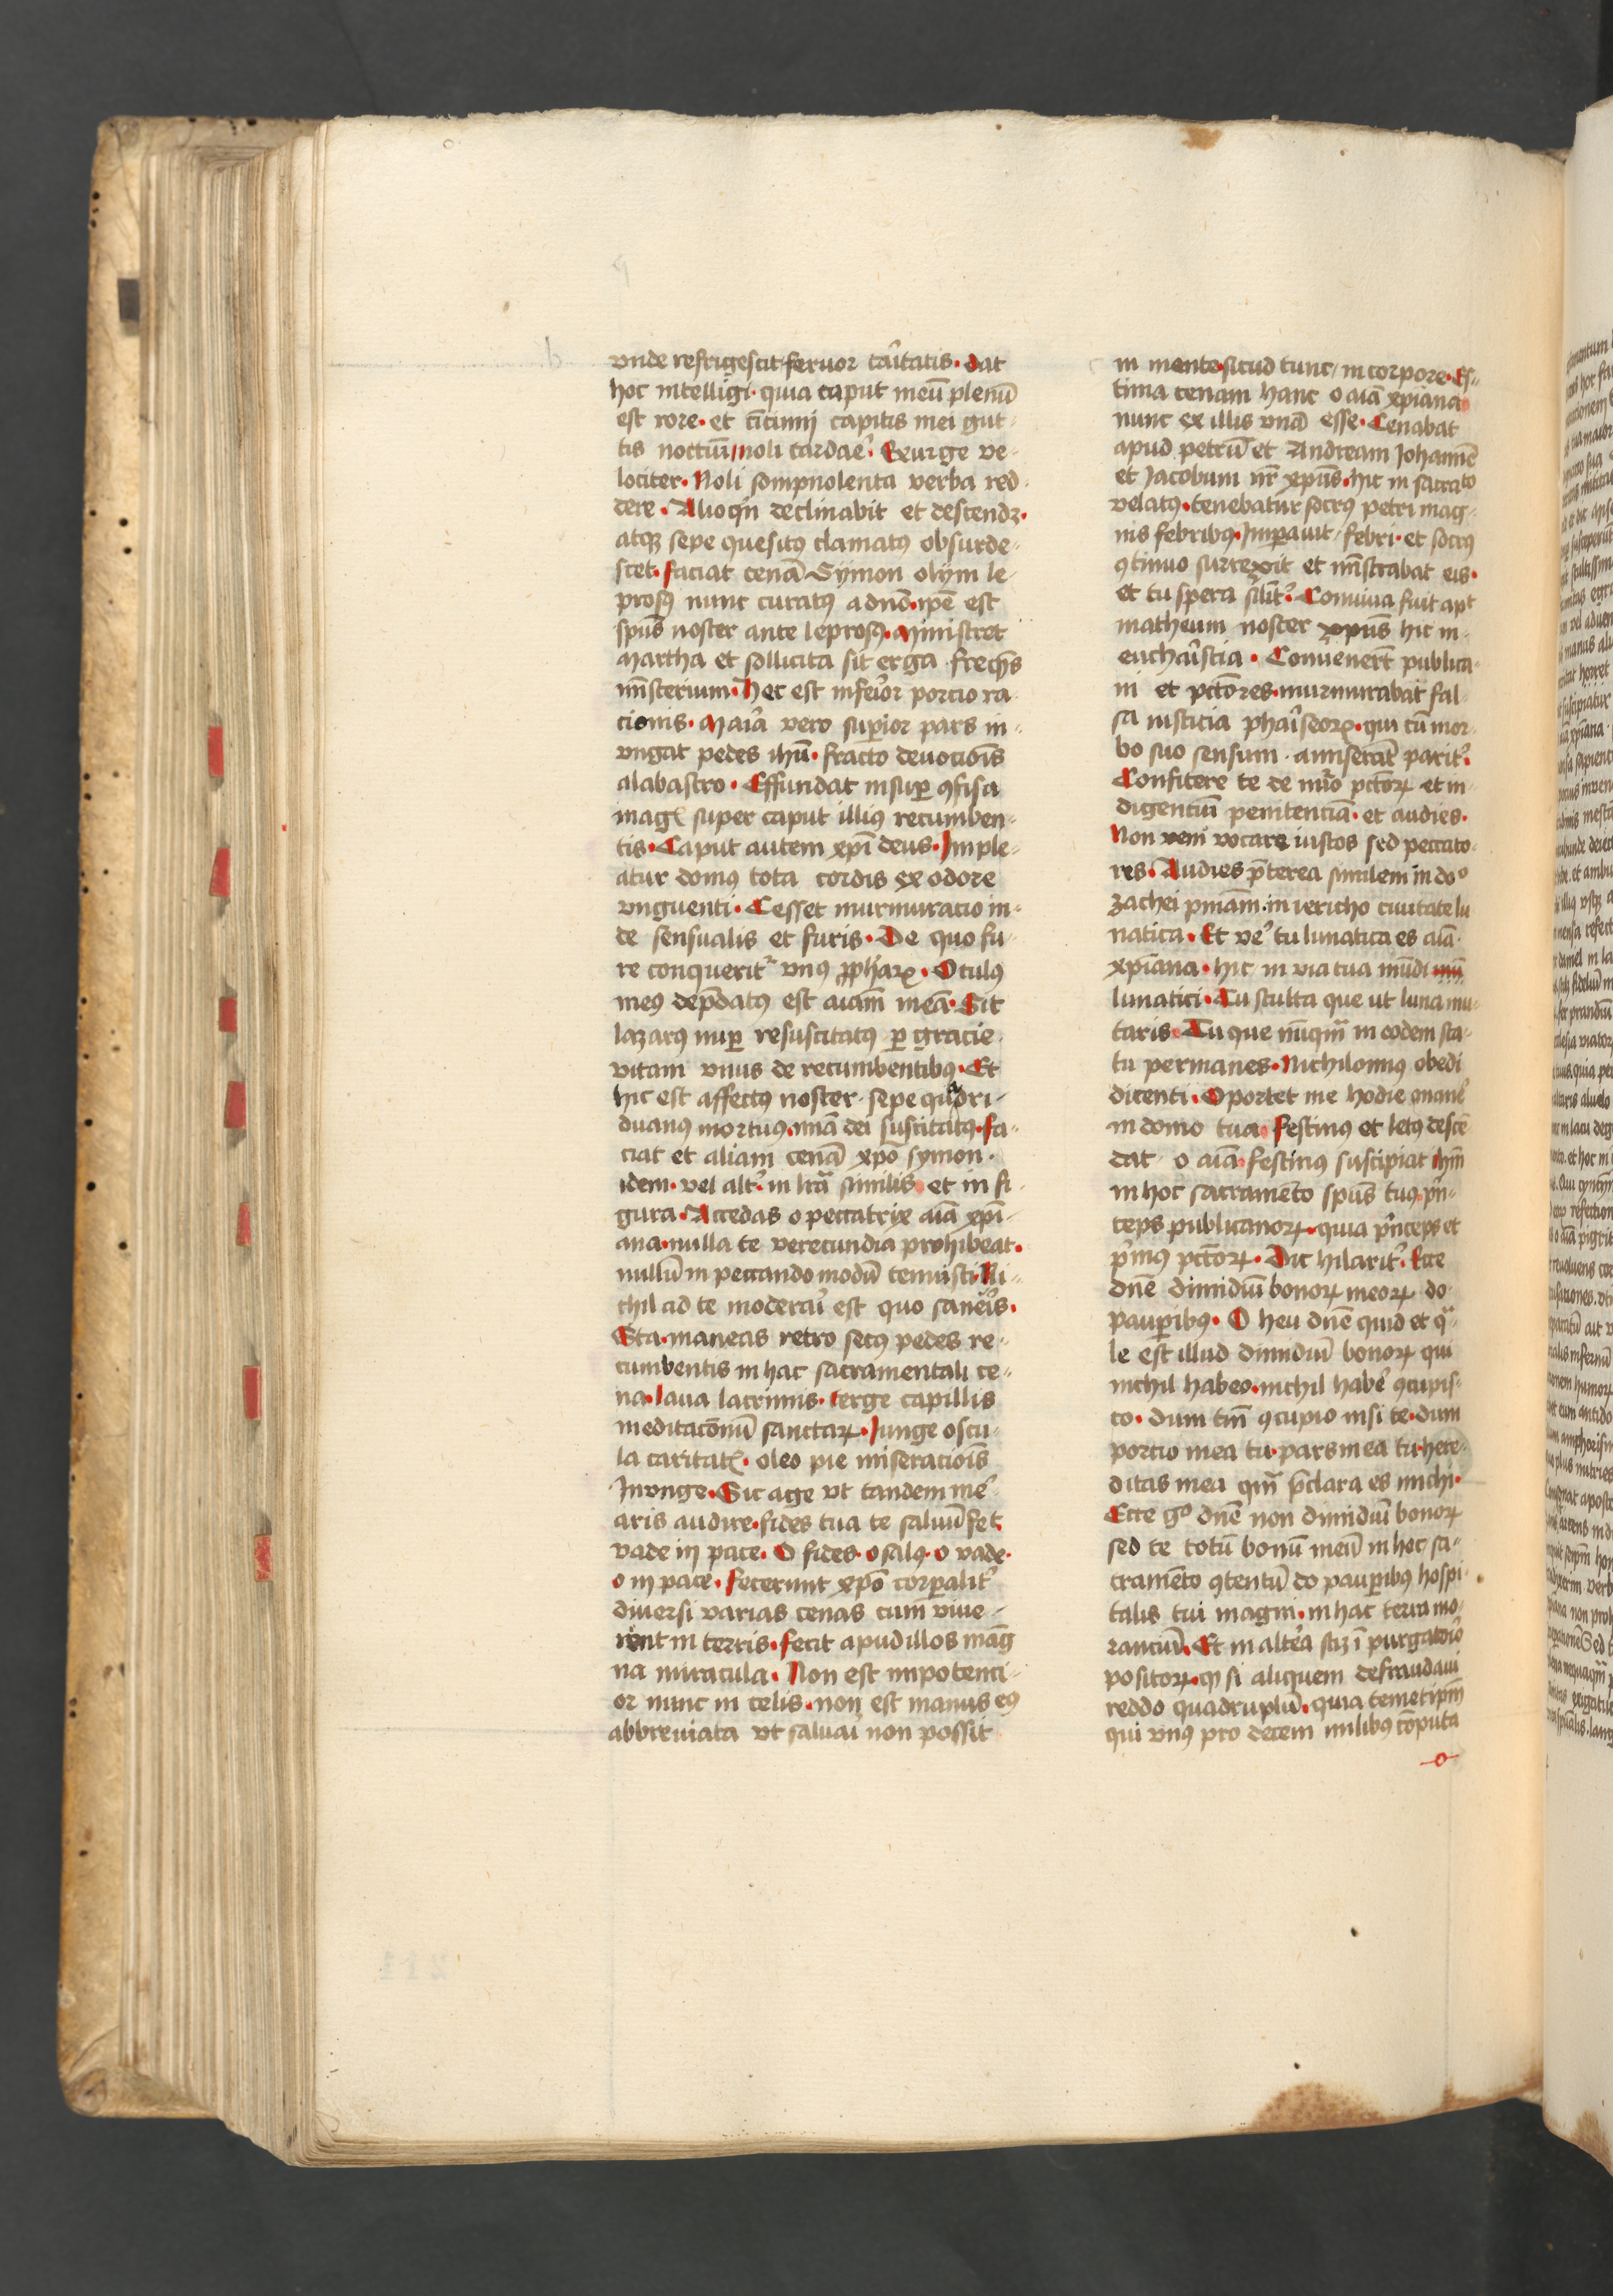 vnde refrigescit fervor ca'itatis · dat
hoc intelligi · quia caput meū plenū
est rore · et ci̅cinnj capitis mei gut
tis noctiū / noli tardae᷒ · Exurge ve-
lociter · Noli sompnolenta verba red
dere · Alioqin declinabit et descendꝫ ·
atqꝫ sepe quesitꝰ clamatꝰ obsurde-
scet · faciat cenā Sÿmon olÿm le-
prosꝰ nunc curatꝰ a dn̄o · ip̄e est
sp̄us noster ante leprosꝰ · Ministret
Martha et sollicita sit erga freq̄ns
mīsterium · hec est infe'ior portio ra
cionis · Ma'ia vero suꝑior pars in-
vngat pedes ihū · fracto deuocōis
alabastro · Effundat insuꝑ ꝯfisa
mag᷒ super caput illiꝰ recumben-
tis · Caput autem xp̄i deus · Imple-
atur domꝰ tota cordis ex odore
vnguenti · Cesset murmuracio in-
de sensualis et furis · De quo fu-
re conquerit᷒ vnꝰ ꝓphāꝝ · Oculꝰ
meꝰ dep̄datꝰ est aīam meā · Sit
lazarꝰ nuꝑ resuscitatꝰ ꝑ gracie
vitam vnus de recumbentibꝰ · Et
hic est affectꝰ noster · sepe quadri-
duanꝰ mortuꝰ · miā dei suscitatꝰ · fa-
ciat et aliam cenā xp̄o symon ·
idem · vel alt᷒ · in lr̄a similis et in fi-
gura · Accedas o peccatrix aīa xp̄i-
ana · nulla te verecundia prohibeat ·
nullū in peccando modū tenuisti · Ni-
chil ad te modera'i est quo sane'is ·
Sta · maneas retro secꝰ pedes re-
cumbentis in hac sacramentali ce-
na · laua lacrimis · terge capillis
meditacōnū sanctaꝝ · Junge oscu-
la caritat᷒ · oleo pie miseracōis
Jnvnge · Sic age vt tandem me᷒
aris audire · fides tua te saluū fec̄
vade in pace · O fides · o salꝰ · o vade ·
o in pace · fecerunt xp̄o corꝑalit᷒
diuersi varias cenas cum viue-
rent in terris · fecit apud illos mag
na miracula · Non est impotenci-
or nunc in celis · non est manus eꝰ
abbreuiata vt salua'i non possit
in mente · sicud tunc / in corpore · Es-
tima cenam hanc o aīa xp̄iana
nunc ex illis vnā esse · Cenabat
apud petrū et Andream Johannē
et Jacobum nr̄ xp̄us · hic in saccato
velatꝰ · tenebatur socrꝰ petri mag-
nis febribꝰ · Imꝑauit / febri · et socrꝰ
ꝯtinuo surrexit et mīstrabat eis ·
et tu spera sil̄it᷒ · Conuiua fuit apt
matheum noster xp̄us hic in
eucha'istia · Convener̄t publica-
ni et pctōres · murmurabat fal-
sa iusticia pha'iseoꝝ · qui cū mor-
bo suo sensum · amiserāt parit᷒ ·
Confitere te de nu᷒o pctōꝝ et in
digentiū penitenciā · et audies ·
Non veni vocare iustos sed peccato-
res · Audies p̄terea similem in doº
zachei pm̄am · in iericho ciuitate lu
natica · Et ve᷒ tu lunatica es aīa ·
xp̄iana · hic in via tua mūdi
lunatici · Tu stulta que ut luna mu-
taris · Tu que nūqm̄ in eodem sta-
tu permanes · Nichilomiꝰ obedi
dicenti · Oportet me hodie mane᷒
in domo tua · festinꝰ et letꝰ descē-
dat o aīa · festinꝰ suscipiat ihm̄
in hoc sacramēto sp̄us tuꝰ p'n-
ceps publicanoꝝ · quia p'nceps et
p'mꝰ pctōꝝ · Dic hilarit᷒ · Ecce
dn̄e dimidiū bonoꝝ meoꝝ do
pauꝑibꝰ · O heu dn̄e quid et qa-
le est illud dimidiū bonoꝝ qui
nichil habeo · nichil habe᷒ ꝯcupis-
co · dum tm̄ ꝯcupio nisi te · dum
portio mea tu · pars mea tu · here-
ditas mea qm̄ p̄clara es michi ·
Ecce gº dn̄e non dimidiū bonoꝝ
sed te totū bonū meū in hoc sa-
cramēto ꝯtentū do pauꝑibꝰ hospi-
talis tui magni · in hac terra mo-
rantiū · Et in alte᷒a scꝫ ī purgato'io
positoꝝ · ꝙ si aliquem defraudaui
reddo quadruplū · quia temetip̄m
qui vnꝰ pro decem milibꝰ cōputa